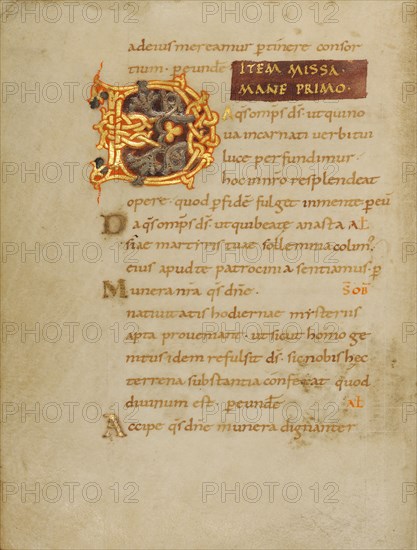 adeius mereamur ptinere consor
tium. peunde
ITEM MISSA.
MANE PRIMO.
Da qs omps ds. ut qui no
ua incarnati uerbi tui
luce perfundimur.
hoc in nro resplendeat
opere. quod p fide fulget in mente. p eu
Da qs omps ds. ut qui beate anasta AL
siae martiris tuae sollemnia colim
eius apud te patrocinia sentiamus. p
Munera nra qs dne. SOB
natiuitatis hodiernae mysteriis
apta proueniant. ut sicut homo ge
nitus idem refulsit ds. sic nobis hec
terrena substantia conferat quod
diuinum est. p eunde AL
Accipe qs dne munera dignanter
PHOTO 12